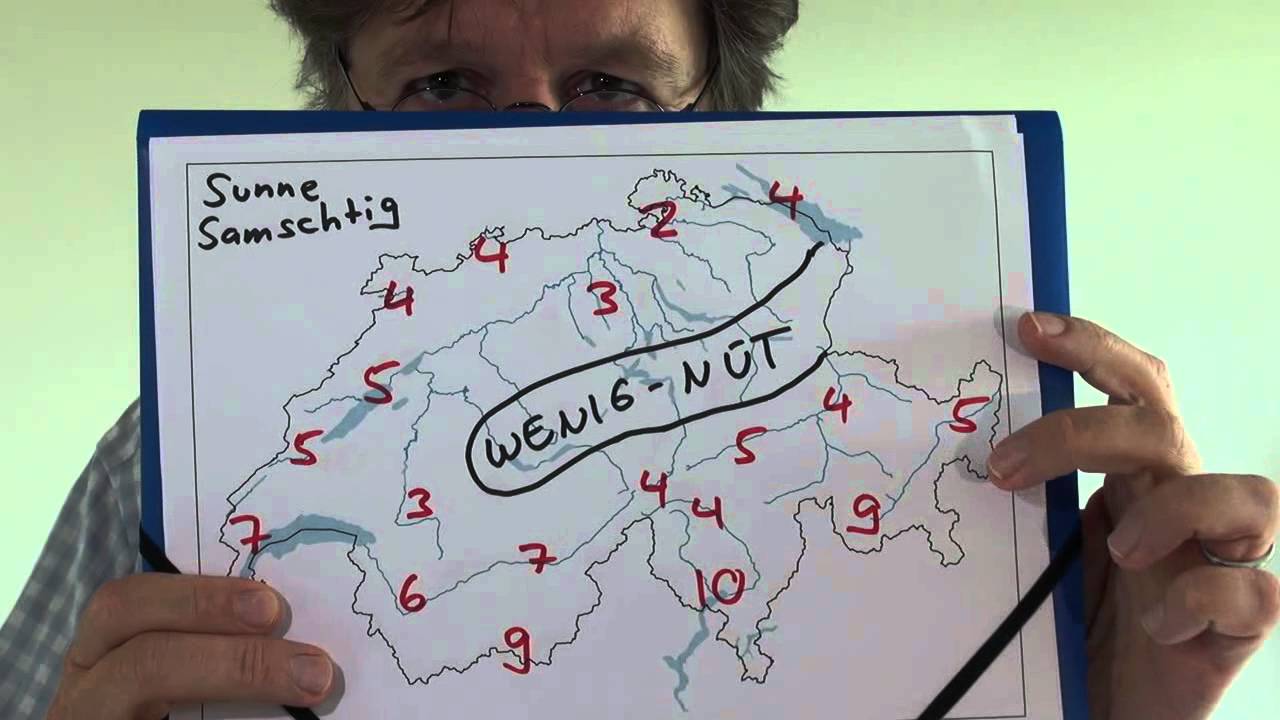 Sunne
Samschtig
4
2
4
4
3
WENIG-NÜT
5
4
5
5
5
4
3
4
9
7
7
6
10
9